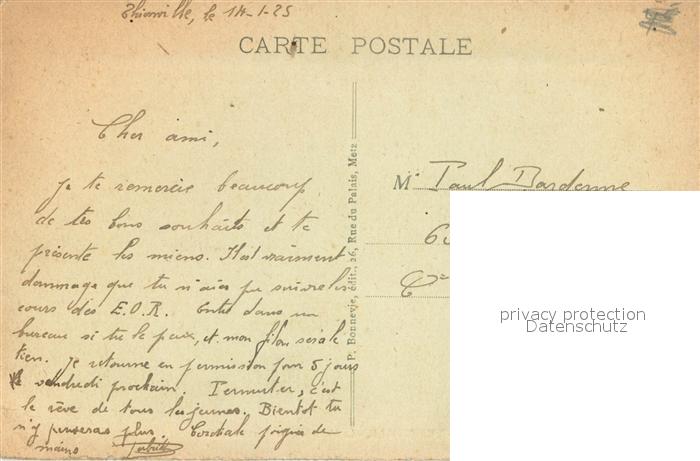 Thionville, le 14-1-25
CARTE POSTALE
Cher ami,
Je te remercie beaucoup
de tes bons souhaits et te
présente les miens. Il est vraiment
dommage que tu n'aies pu suivre les
cours des E.O.R. Entre dans un
bureau si tu le peux, et mon filon sera le
tien. Je retourne en permission pour 5 jours
vendredi prochain. Permuter, c'est
le rêve de tous les jeunes. Bientôt tu
n'y penseras plus. Cordiale poignée de
mains
P. Bonnevie, édit., 26, Rue du Palais, Metz
M^r Paul Bardenne
privacy protection
Datenschutz